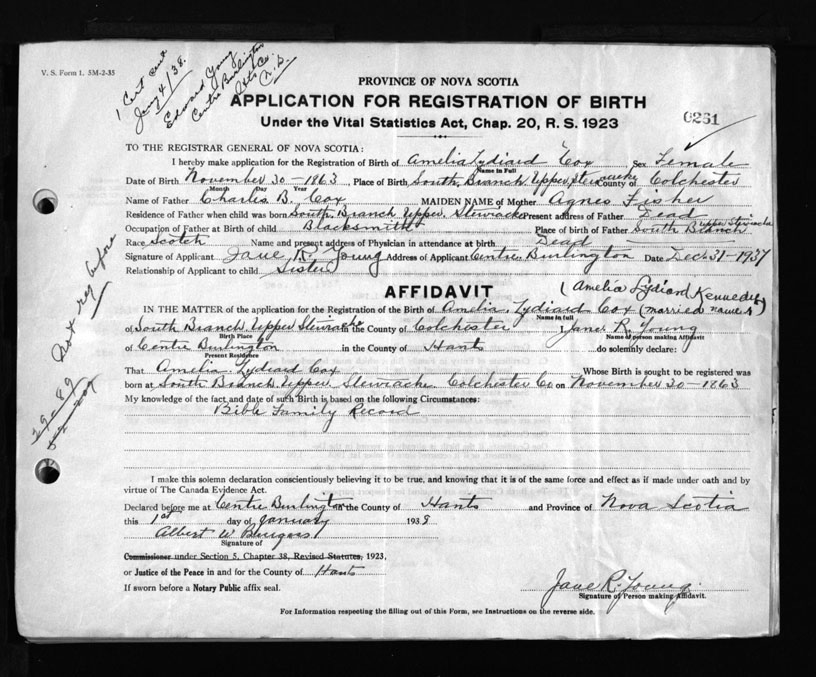 V. S. Form 1. 5M-2-35
1 Cert sent
Jany 4/38.
Edward Young
Centre Burlington
Hts Co.
N. S.
PROVINCE OF NOVA SCOTIA
APPLICATION FOR REGISTRATION OF BIRTH
0261
Under the Vital Statistics Act, Chap. 20, R. S. 1923
TO THE REGISTRAR GENERAL OF NOVA SCOTIA:
I hereby make application for the Registration of Birth of Amelia Lydiard Cox Sex Female
Name in Full
Date of Birth November 30-1863 Place of Birth South Branch Upper Stewiacke County of Colchester
Month Day Year
Name of Father Charles B. Cox MAIDEN NAME of Mother Agnes Fisher
Residence of Father when child was born South Branch Upper Stewiacke Present address of Father Dead
Occupation of Father at Birth of child Blacksmith Place of birth of Father South Branch Upper Stewiacke
Race Scotch Name and present address of Physician in attendance at birth Dead
Signature of Applicant Jane R. Young Address of Applicant Centre Burlington Date Dec-31-1937
Relationship of Applicant to child Sister
AFFIDAVIT
(Amelia Lydiard Kennedy)
IN THE MATTER of the application for the Registration of the Birth of Amelia Lydiard Cox (married name)
Name in full
of South Branch Upper Stewiacke in the County of Colchester Jane R. Young
Birth Place Name of person making Affidavit
of Centre Burlington in the County of Hants do solemnly declare:
Present Residence
That Amelia Lydiard Cox Whose Birth is sought to be registered was
born at South Branch Upper Stewiacke Colchester Co on November 30-1863
My knowledge of the fact and date of such Birth is based on the following Circumstances:
Bible Family Record
I make this solemn declaration conscientiously believing it to be true, and knowing that it is of the same force and effect as if made under oath and by
virtue of The Canada Evidence Act.
Declared before me at Centre Burlington in the County of Hants and Province of Nova Scotia
this 1st day of January 1938
Albert W Burgess
Signature of
Commissioner under Section 5, Chapter 38, Revised Statutes, 1923,
or Justice of the Peace in and for the County of Hants
If sworn before a Notary Public affix seal.
Jane R. Young
Signature of Person making Affidavit.
For Information respecting the filling out of this Form, see Instructions on the reverse side.
Not reg before